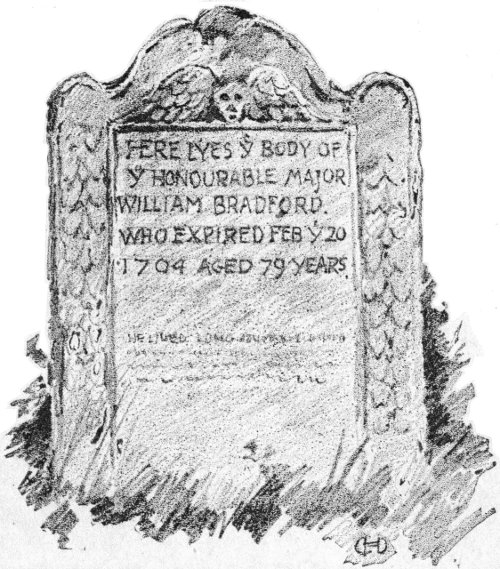 HERE LYES Ẏ BODY OF
Ẏ HONOURABLE MAJOR
WILLIAM BRADFORD.
WHO EXPIRED FEB Ẏ 20
1704 AGED 79 YEARS
HE LIVED LONG